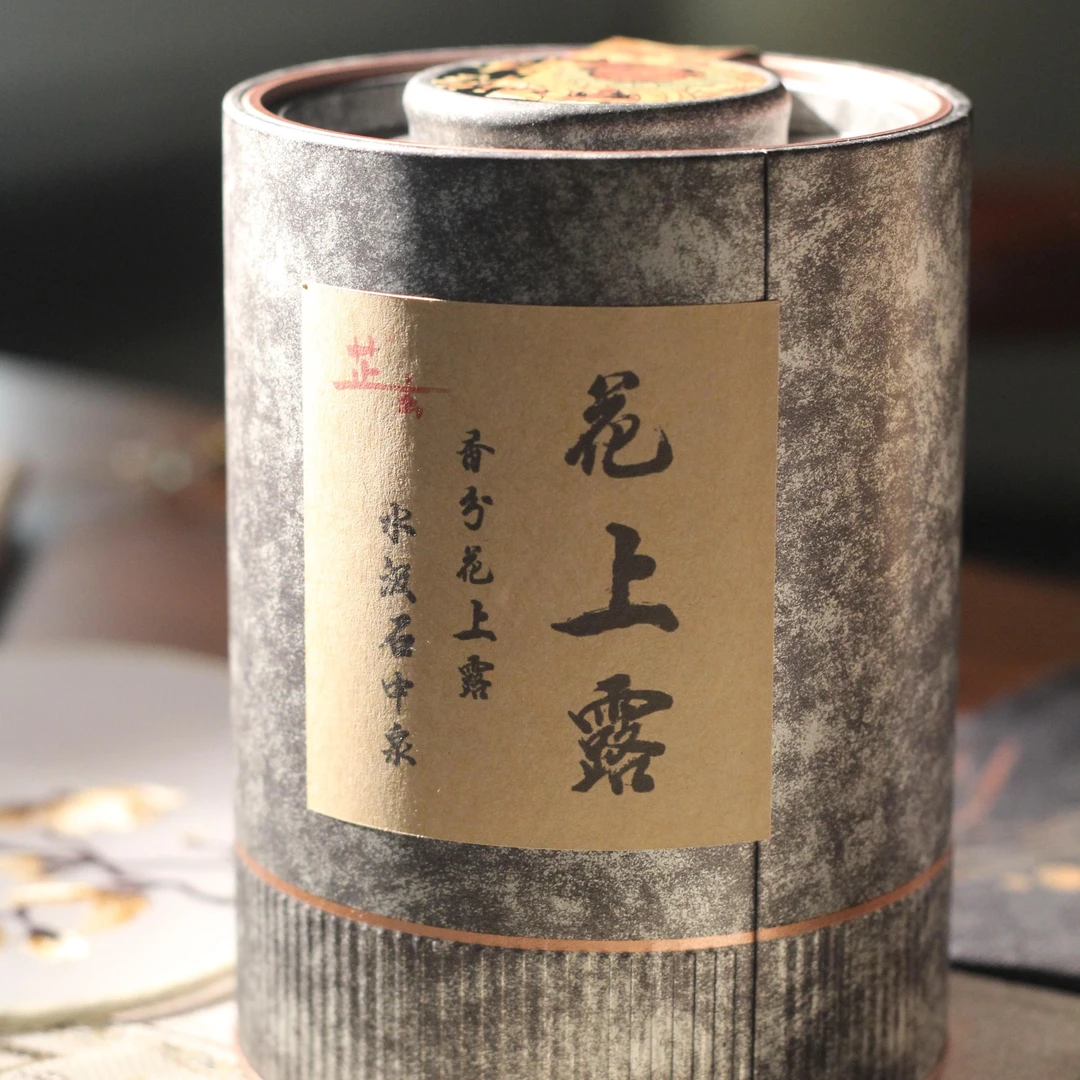 花上露
香分花上露
水汲石中泉
芷玄